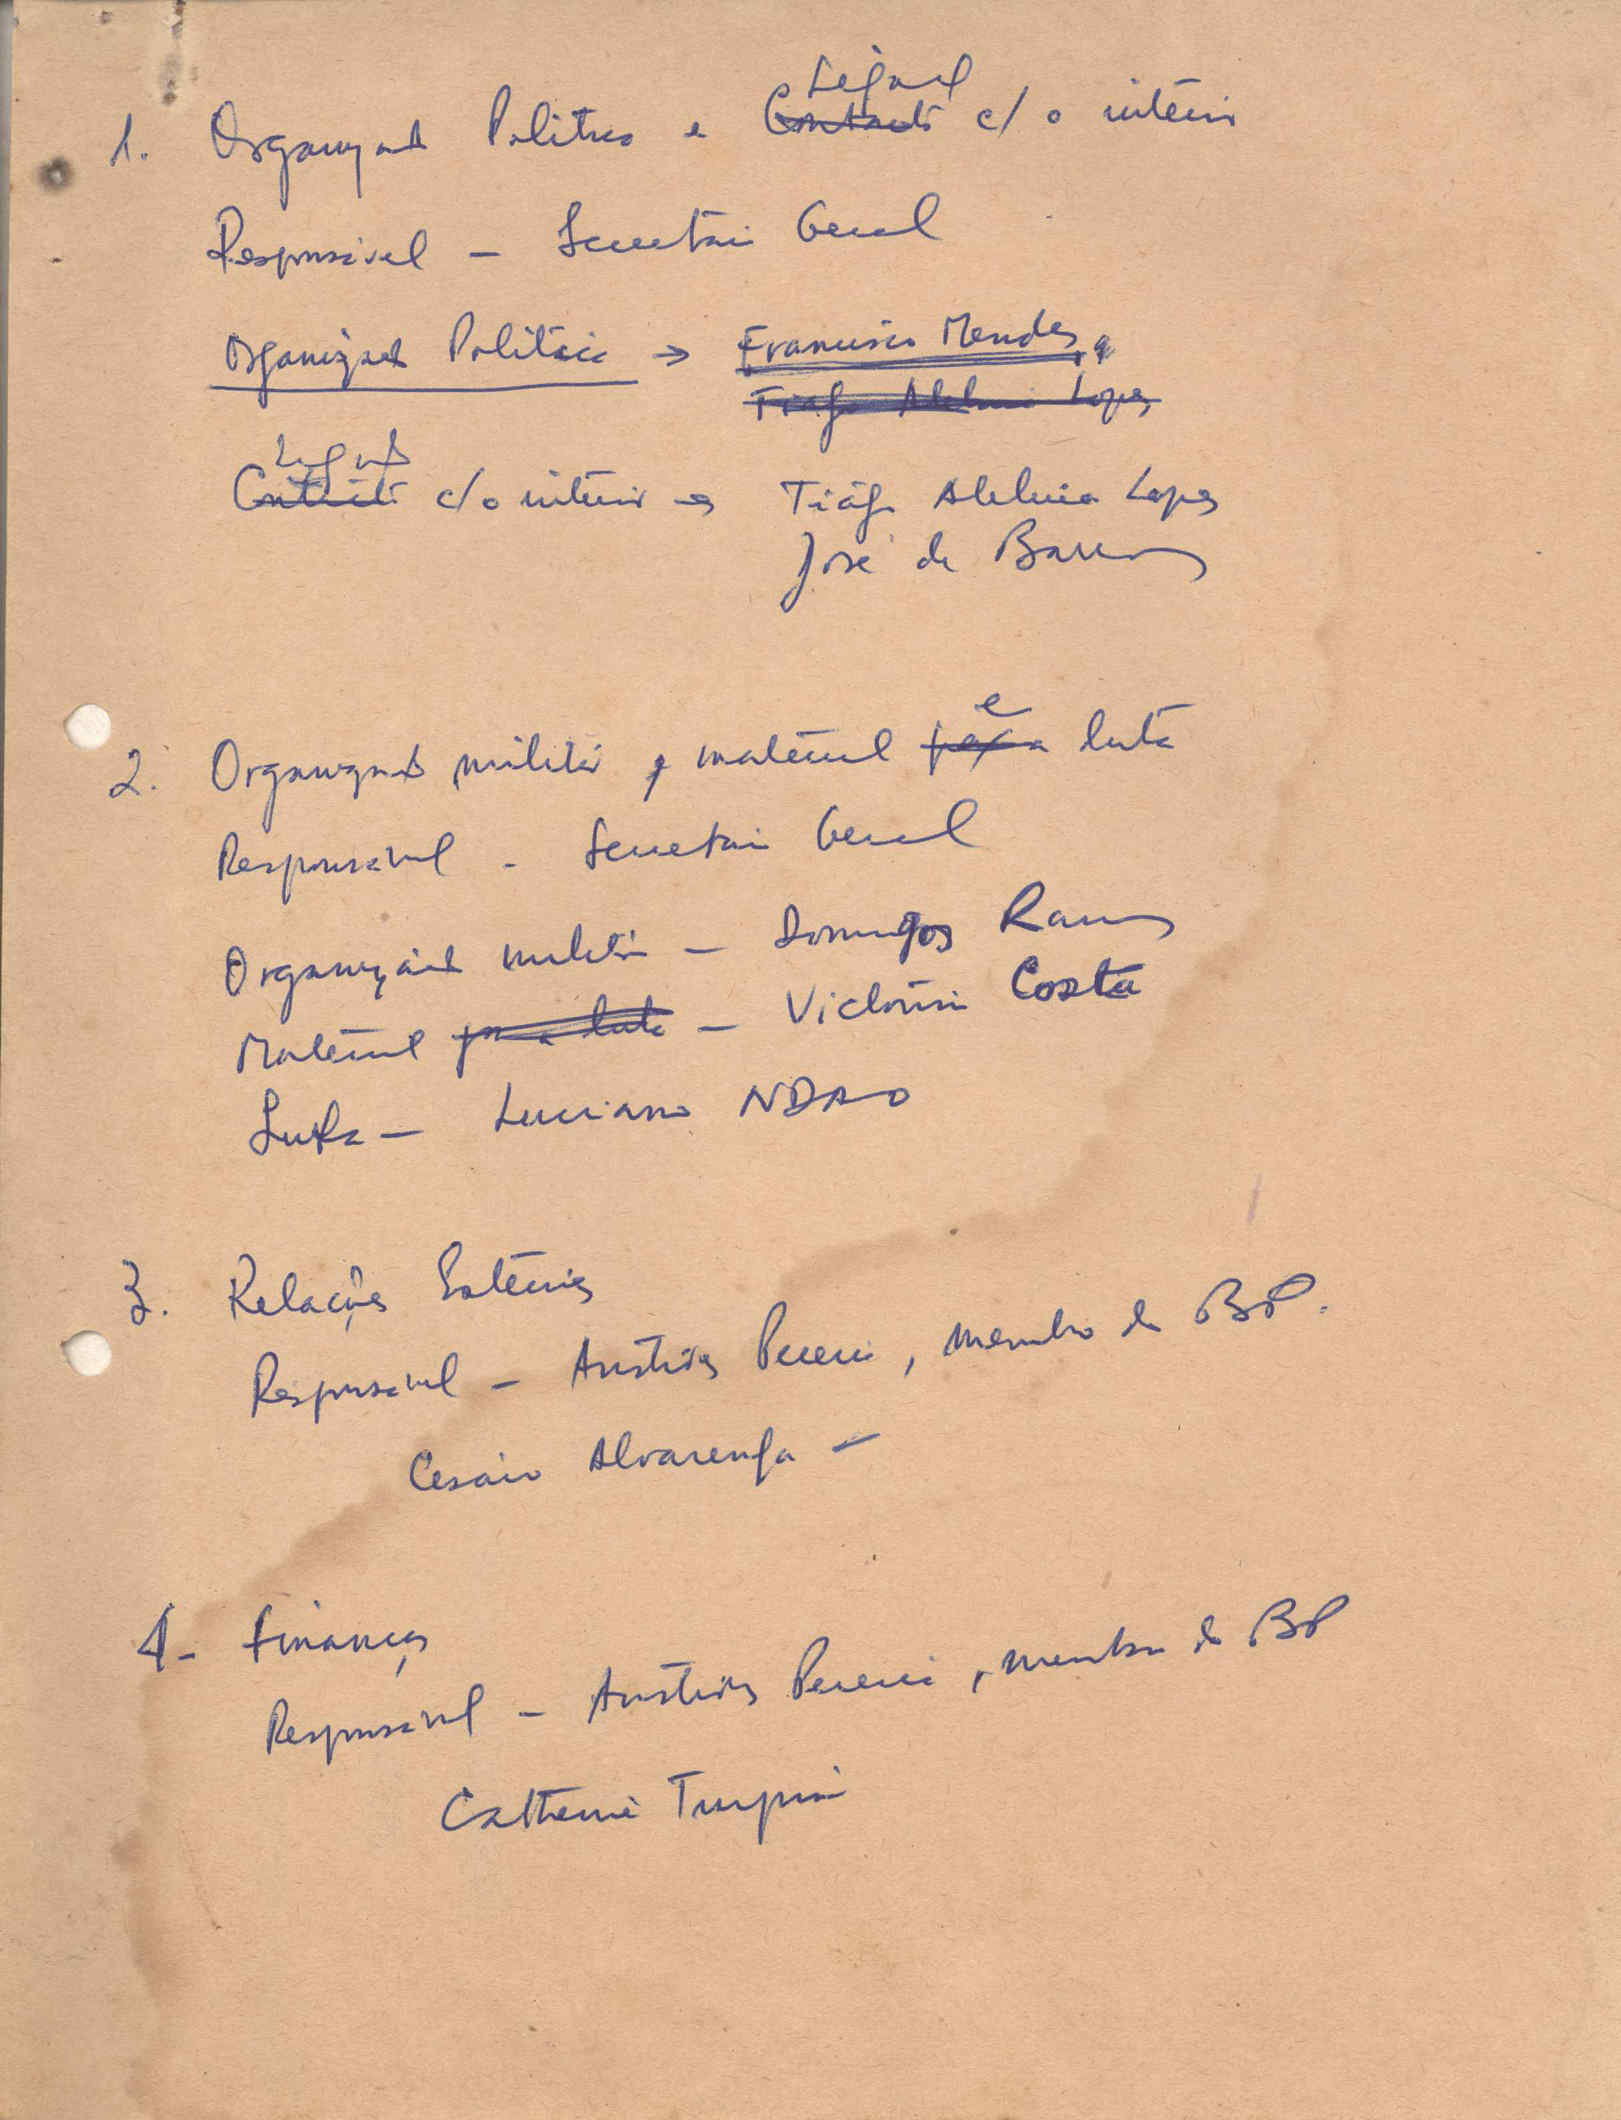 Ligação
1. Organização Política e Contacto c/ o interior
Responsável - Secretário Geral
Organização Política → Francisco Mendes, e
Tiago Aleluia Lopes
Ligação
Contacto c/ o interior → Tiago Aleluia Lopes
José de Barros
e
2. Organização militar, material para luta
Responsável - Secretário Geral
Organização militar - Domingos Ramos
Material para a luta - Victorino Costa
Luta - Luciano NDAO
3. Relações Exteriores
Responsável - Aristides Pereira, membro do BP.
Cesário Alvarenga -
4- Finanças
Responsável - Aristides Pereira, membro do BP
Catherine Turpin